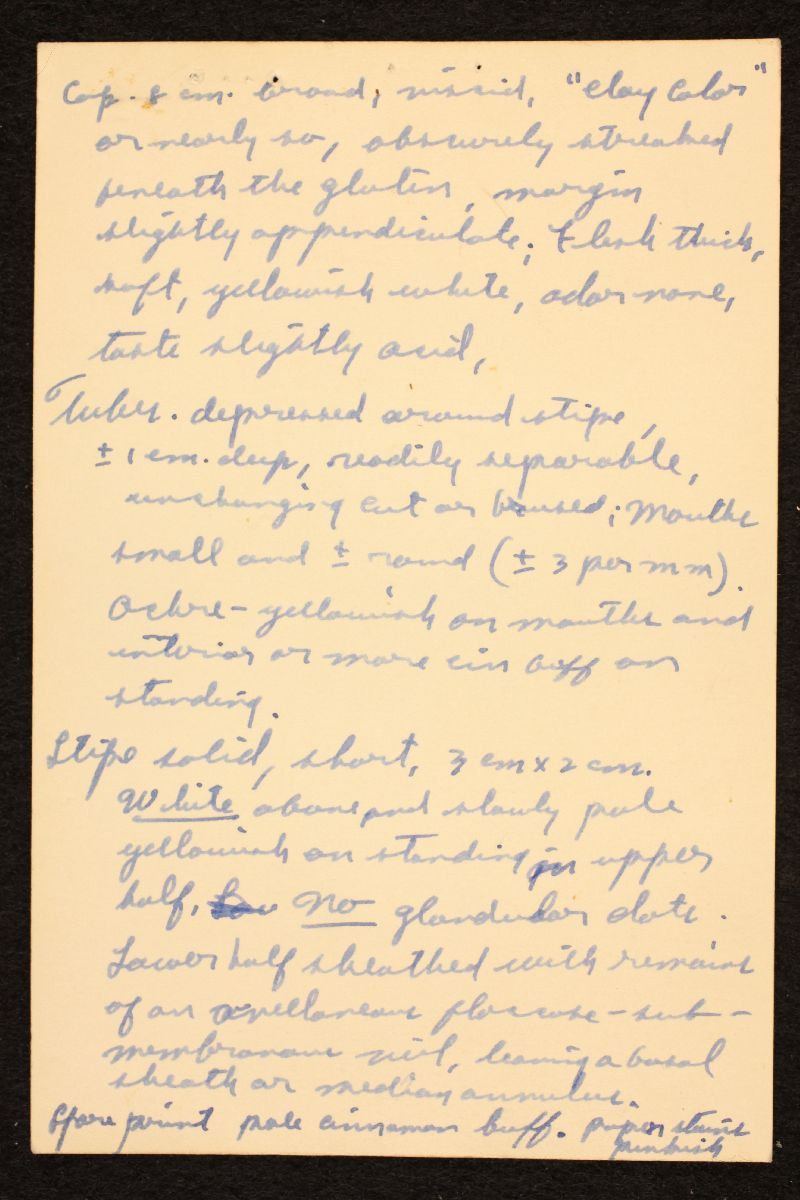 Cap. 8 cm. broad, viscid, "Clay Color"
or nearly so, obscurely streaked
beneath the gluten, margin
slightly appendiculate; Flesh thick,
soft, yellowish white, odor none,
taste slightly acid,
Tubes. depressed around stipe,
± 1 cm. deep, readily separable,
unchanging cut or bruised; Mouths
small and ± round (± 3 per mm).
Ochre-yellowish on mouths and
interior or more cin buff on
standing.
Stipe solid, short, 3 cm x 2 cm.
White above and slowly pale
yellowish on standing in upper
half, No glandular dots.
Lower half sheathed with remains
of an avellaneous floccose-sub-
membranous veil, leaving a basal
sheath or median annulus.
Spore print pale cinnamon buff. paper stains
pinkish